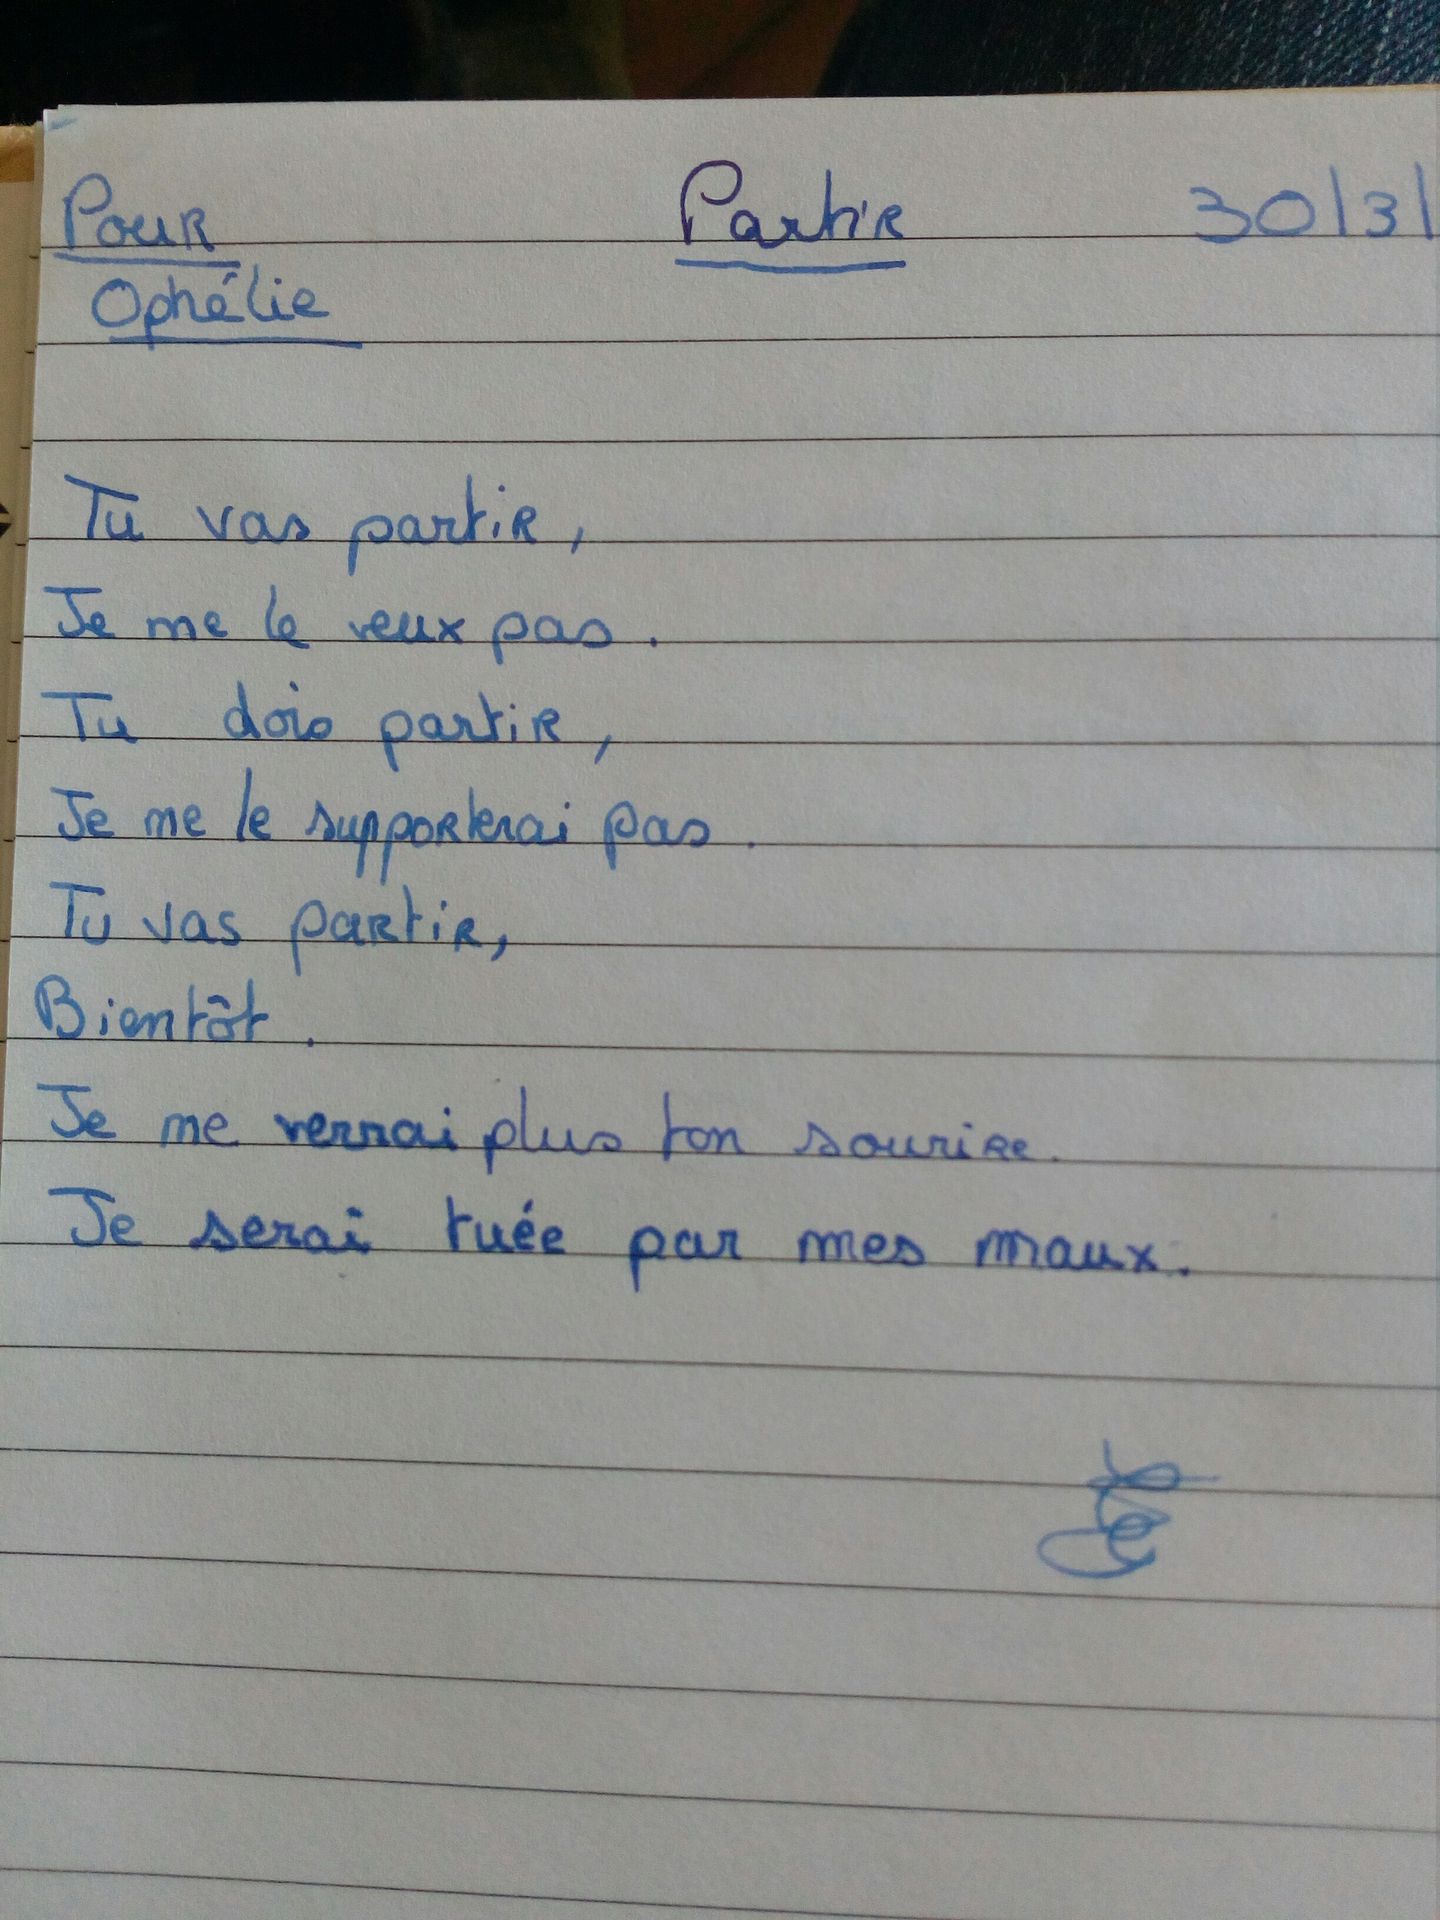 Pour Partir 30/3/
Ophélie
Tu vas partir,
Je ne le veux pas.
Tu dois partir,
Je ne le supporterai pas.
Tu vas partir,
Bientôt.
Je ne verrai plus ton sourire.
Je serai tuée par mes maux.